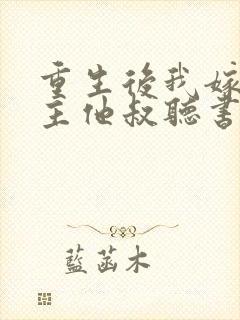 重生後我嫁
主他叔聽書
藍菡木